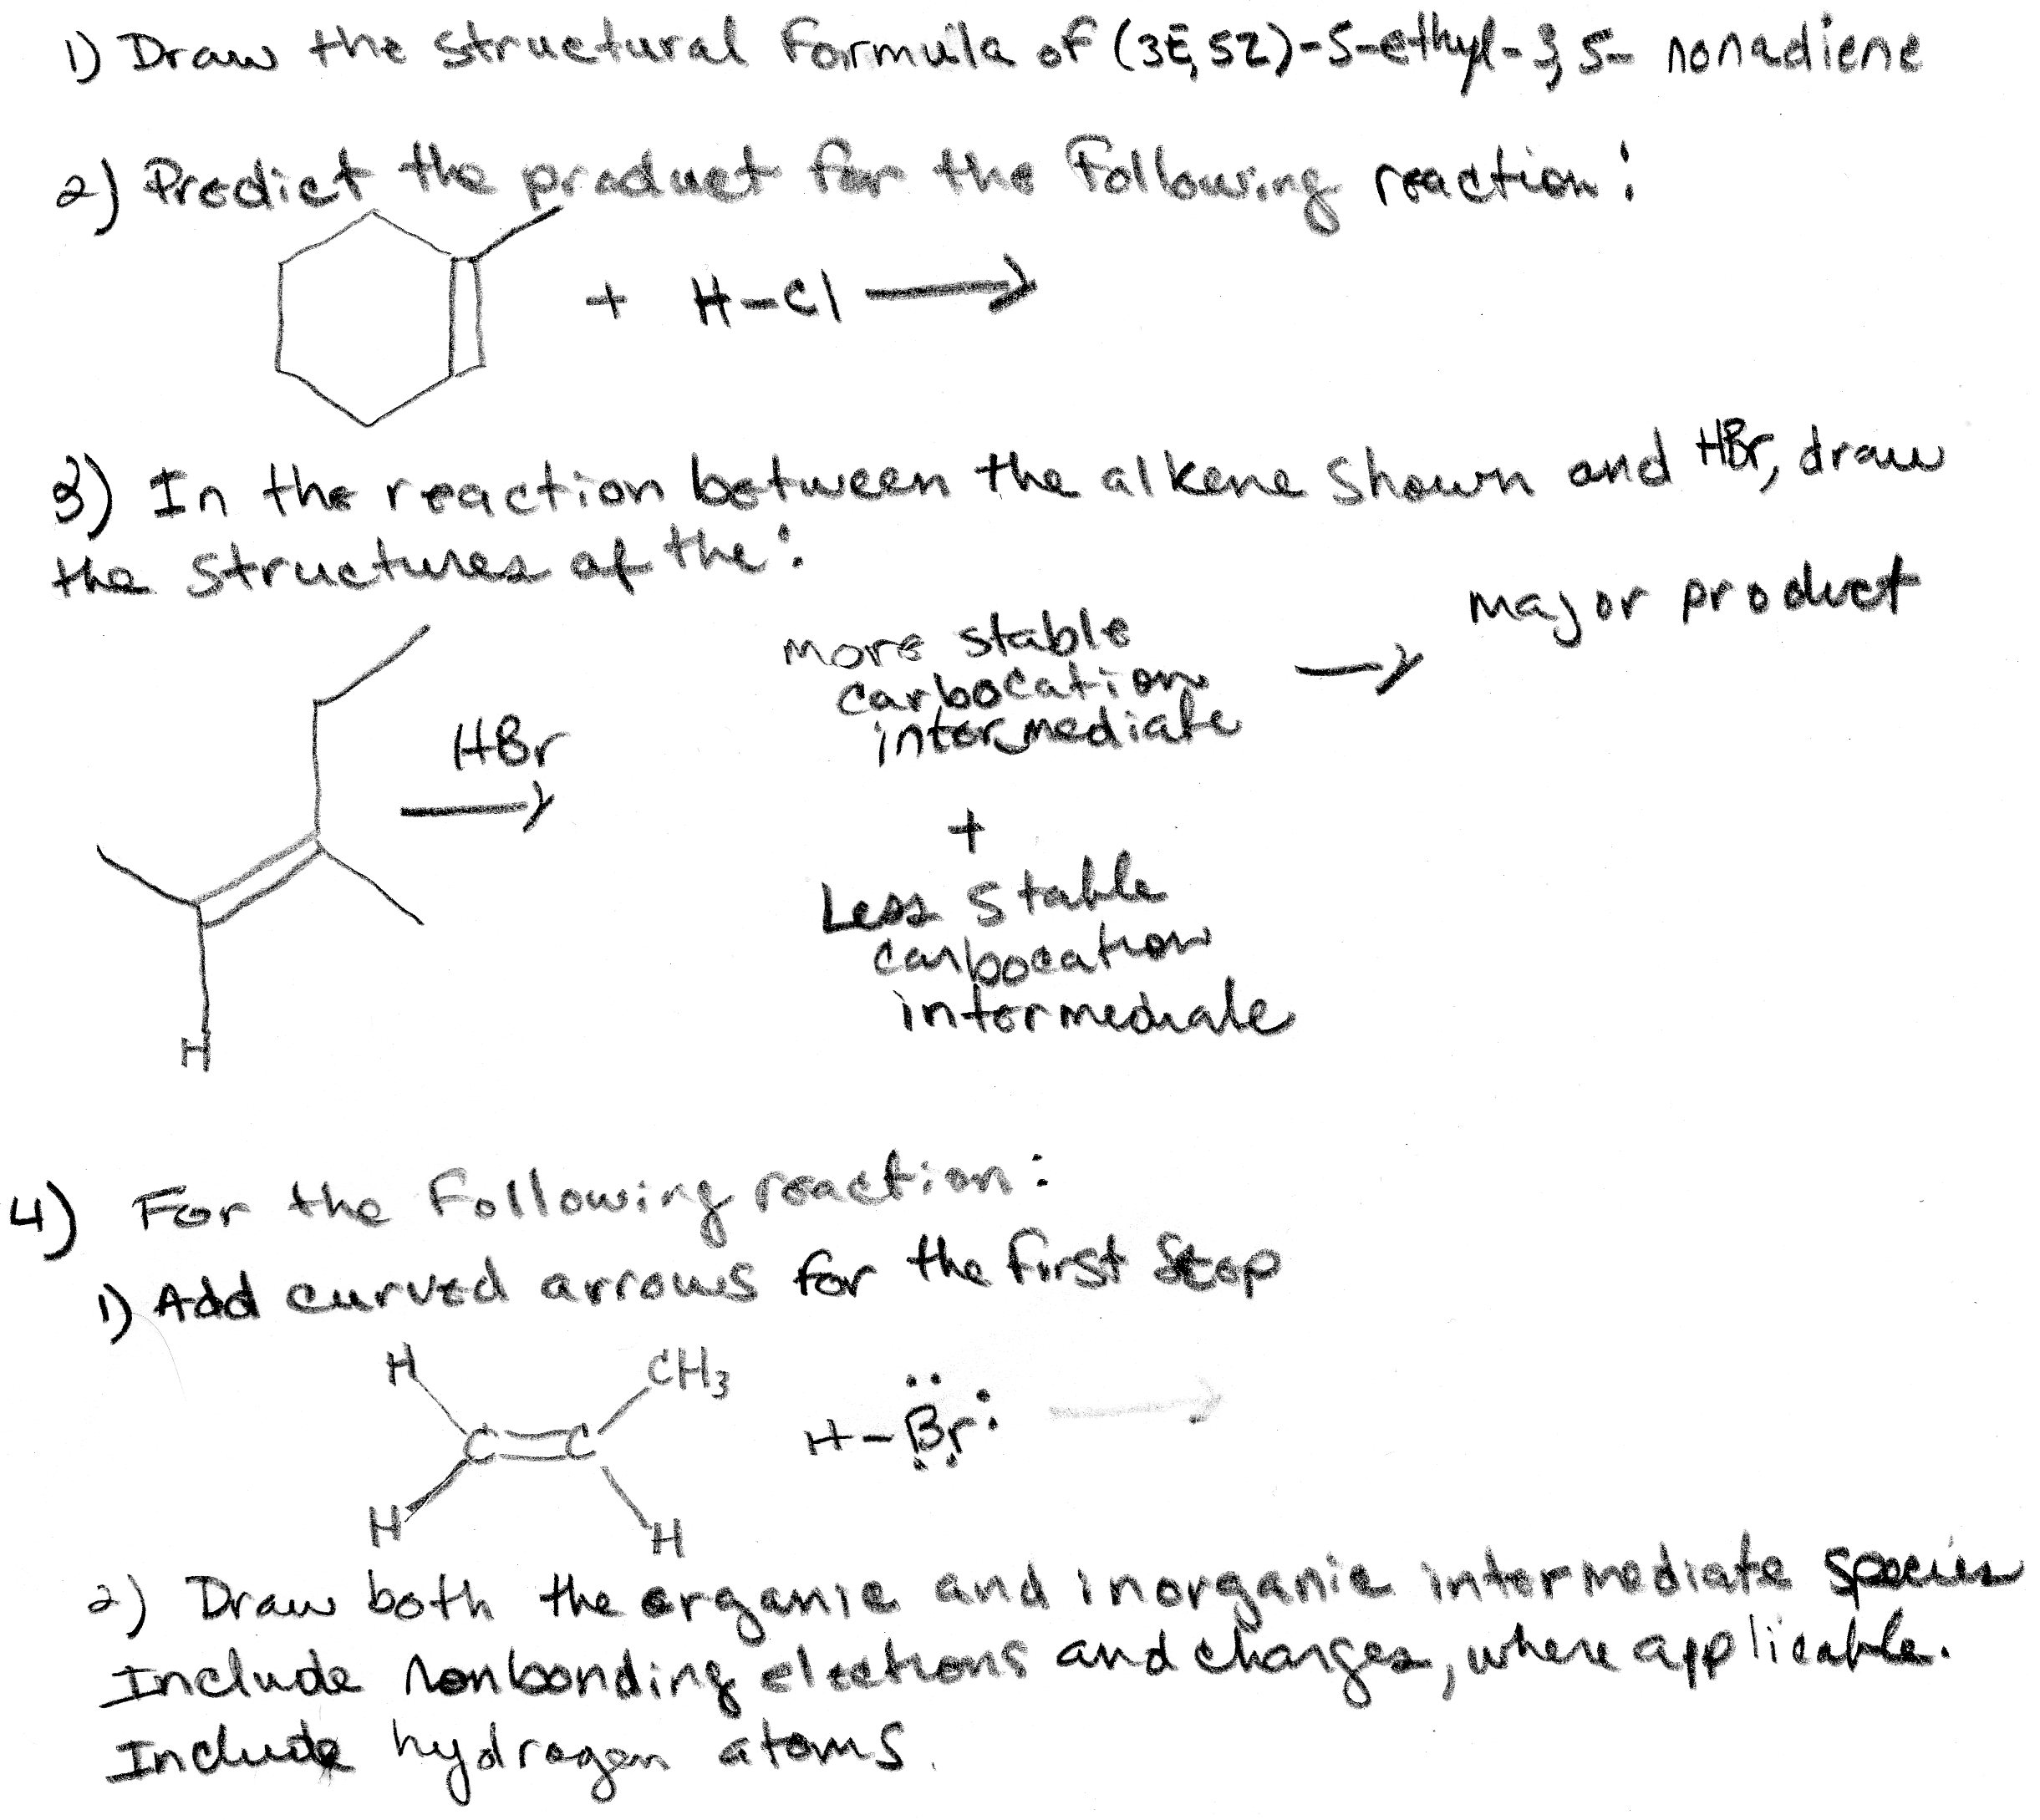 1) Draw the structural formula of (3E,5Z)-5-ethyl-3,5- nonadiene
2) Predict the product for the following reaction:
+ H-Cl →
3) In the reaction between the alkene shown and HBr, draw
the structures of the:
more stable
carbocation
intermediate
→ major product
HBr
+
Less stable
carbocation
intermediate
H
4) For the following reaction:
1) Add curved arrows for the first step
H CH3
C=C H-Br: →
H H
2) Draw both the organic and inorganic intermediate species
Include nonbonding electrons and charges, where applicable.
Include hydrogen atoms.